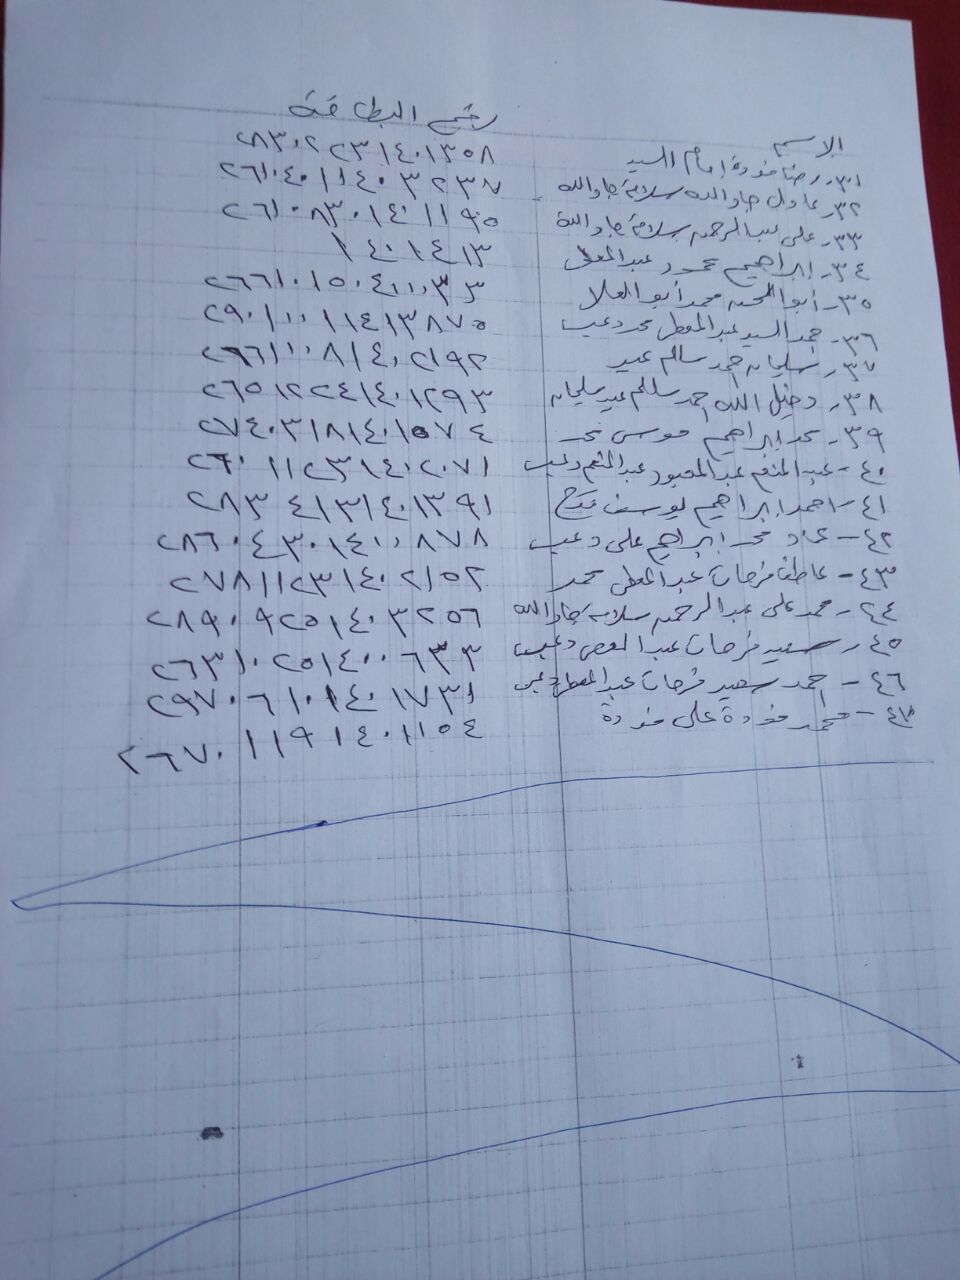 الاسم رقم البطاقة
٣١- رضا فودة إمام السيد ٢٨٣٠٢٢٣١٤٠١٣٥٨
٣٢- عادل جاد الله سلامة جاد الله ٢٦١٠٤٠١١٤٠٣٢٣٧
٣٣- على عبد الرحمن سلامة جاد الله ٢٦١٠٨٣٠١٤٠١١٩٥
٣٤- إبراهيم محمود عبد المعطى ١٤٠١٤١٣
٣٥- أبو الحسن محمد أبو العلا ٢٦٦١٠١٥٠٤٠٠٠٣٣
٣٦- حمد السيد عبد المعطى محمد دعبس ٢٩٠١٠٠١١٤١٣٨٧٥
٣٧- سليمان أحمد سالم عيد ٢٦٦١٠٠٨١٤٠٢١٩٢
٣٨- دخيل الله أحمد سالم عيد سليمان ٢٦٥١٢٢٤١٤٠١٢٩٣
٣٩- محمد إبراهيم موسى محمد ٢٧٤٠٣١٨١٤٠١٥٧٤
٤٠- عبد المنعم عبد المقصود عبد المنعم دعبس ٢٦٠١١٢٣١٤٠٢٠٧١
٤١- احمد إبراهيم يوسف فرج ٢٨٣٤١٣١٤٠١٣٩١
٤٢- عماد محمد إبراهيم على دعبس ٢٨٦٠٤٣٠١٤٠٠٨٧٨
٤٣- عاطف فرحات عبد المعطى محمد ٢٧٨١١٢٣١٤٠٢١٥٢
٤٤- محمد على عبد الرحمن سلامة جاد الله ٢٨٩٠٩٢٥١٤٠٣٢٥٦
٤٥- سعيد فرحات عبد المعطى دعبس ٢٦٣١٠٢٥١٤٠٠٦٣٣
٤٦- احمد سعيد فرحات عبد المعطى دعبس ٢٩٧٠٦١٠١٤٠١٧٣١
٤٧- محمد فودة على فودة ٢٦٧٠١١٩١٤٠١١٥٤